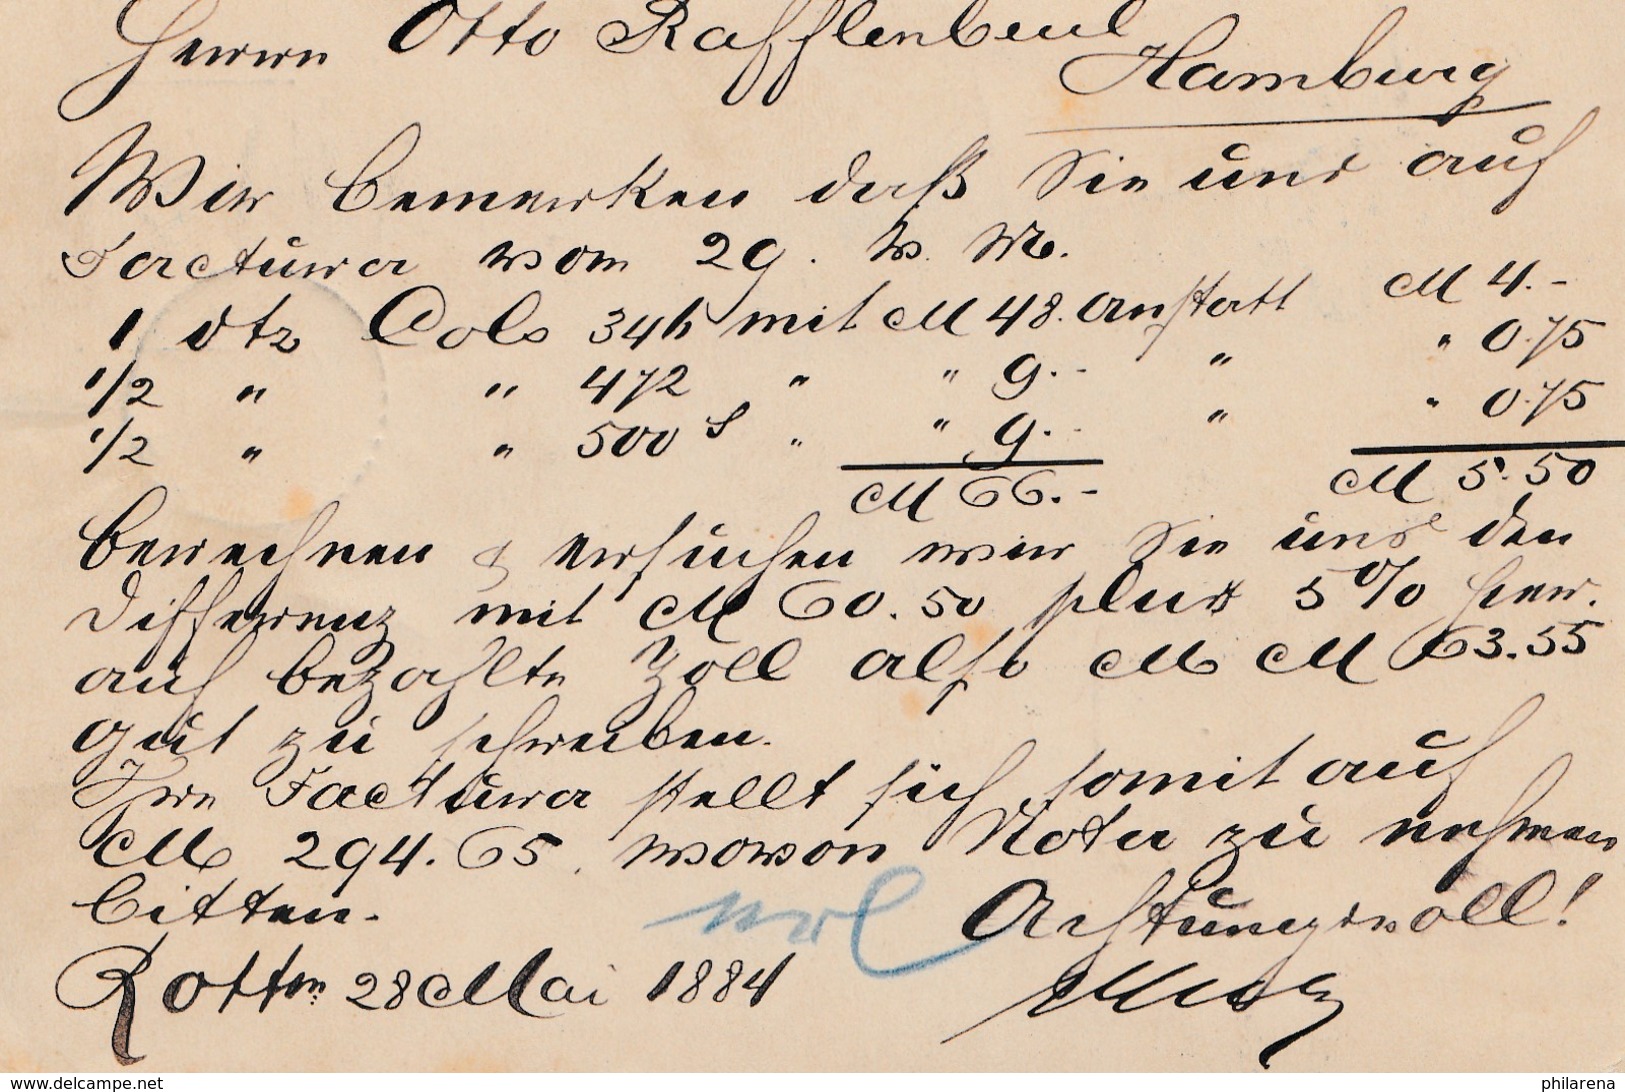 Herrn Otto Rafflenbeul
Hamburg
Wir bemerken daß Sie uns auf
Factura vom 29. v. M.
1 Dtz Cols 34h mit M 48. anstatt M 4.-
1/2 " " 472 " " 9.- " " 0.75
1/2 " " 500 S " " 9.- " " 0.75
M 66.- M 5.50
berechnen & ersuchen wir Sie uns den
Differenz mit M 60.50 plus 5% hier.
auf bezahlte Zoll also M 63.55
gut zu schreiben.
Ihre Factura stellt sich somit auf
M 294.65. wovon Nota zu nehmen
bitten.
Achtungsvoll!
Rottdm 28 Mai 1884
www.delcampe.net
philarena